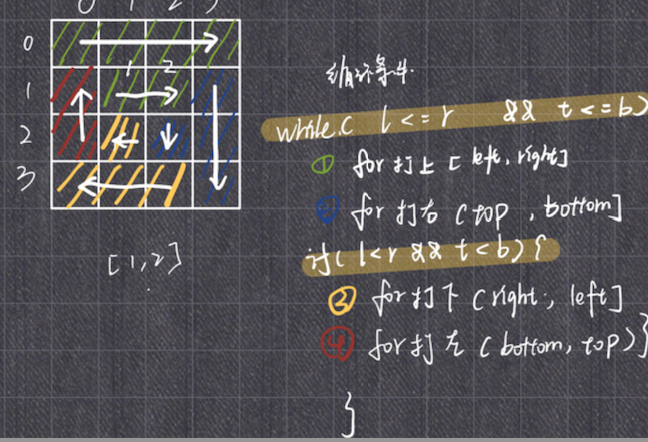 0 1 2 3
0
1 1 2
2
3
[1,2]
循环条件
while( l <= r && t <= b)
① for 打上 [ left, right]
② for 打右 ( top , bottom]
if( l<r && t<b) {
③ for 打下 ( right, left]
④ for 打左 ( bottom, top) }
}